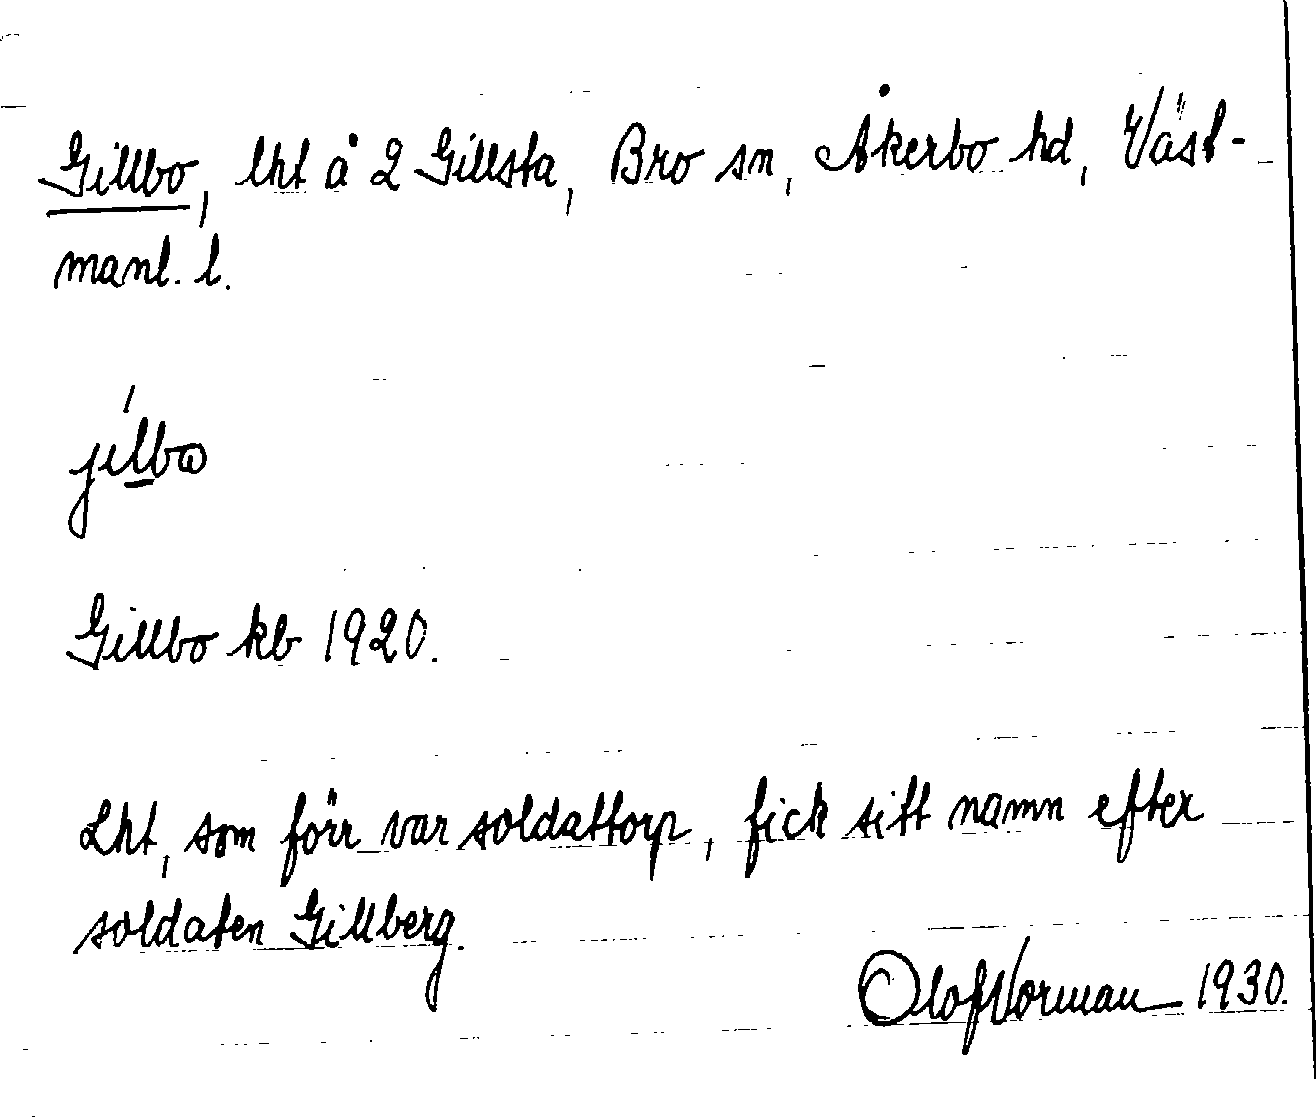 Gillbo, lht å 2 Gillsta, Bro sn, Åkerbo hd, Väst-
manl. l.
jílbω
Gillbo kb 1920.
Lht, som förr var soldattorp, fick sitt namn efter
soldaten Gillberg.
Olof Norman 1930.